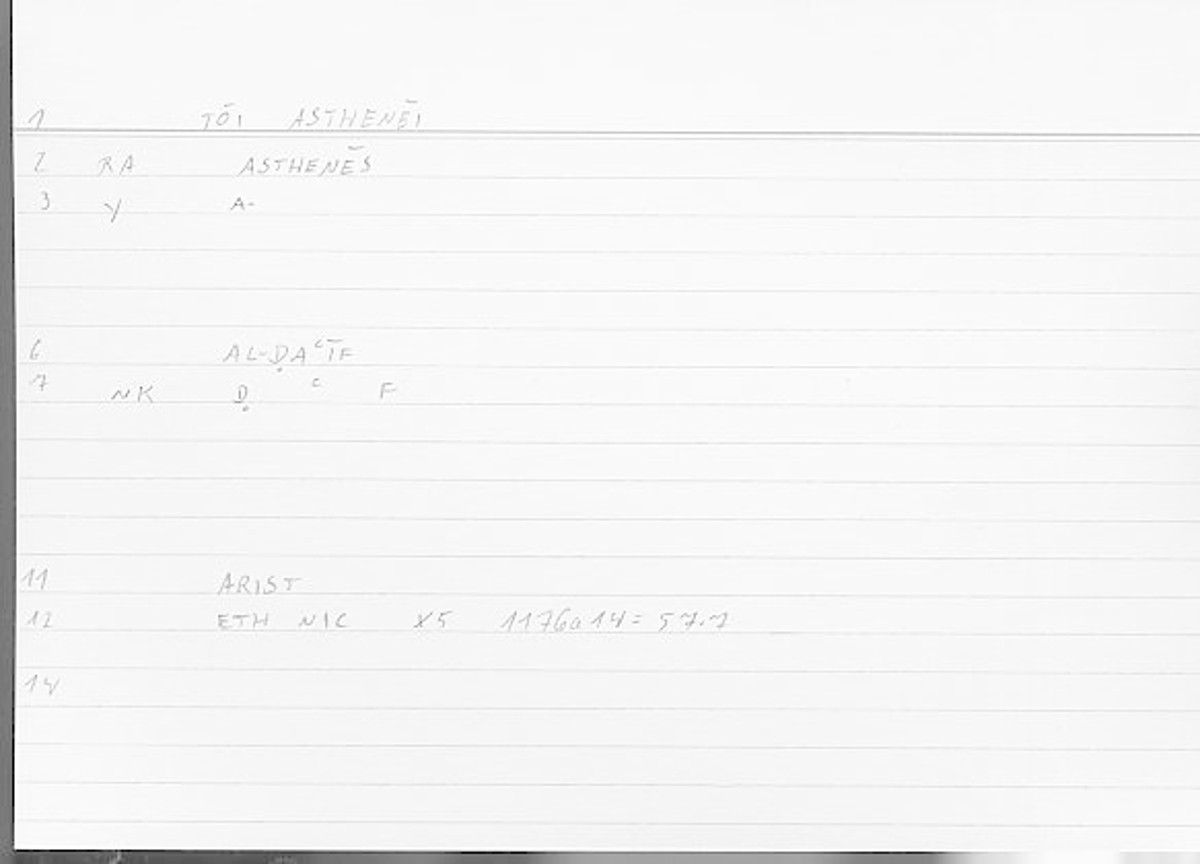 1 TŌI ASTHENĒI
2 RA ASTHENĒS
3 Y A-
6 AL-ḌAʿĪF
7 NK Ḍ ʿ F
11 ARIST
12 ETH NIC X5 1176a14 = 57.7
14